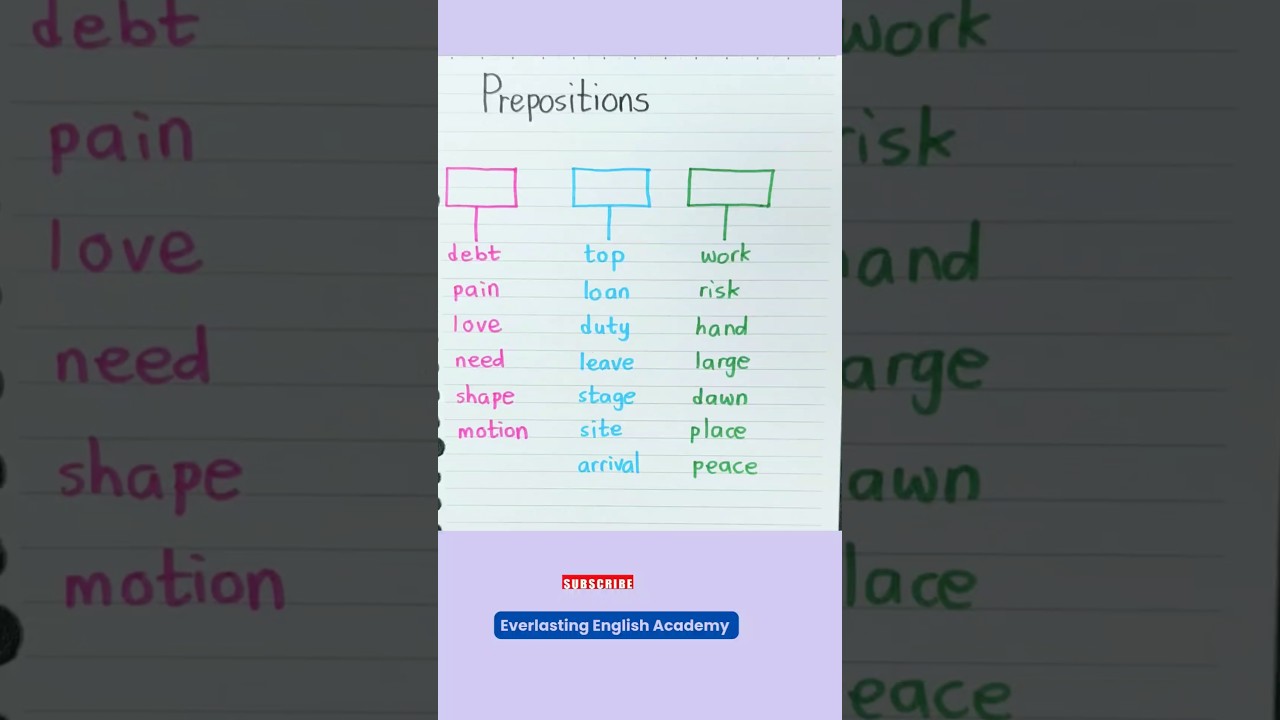 Prepositions
debt top work
pain loan risk
love duty hand
need leave large
shape stage dawn
motion site place
arrival peace
SUBSCRIBE
Everlasting English Academy
debt
pain
love
need
shape
motion
work
risk
hand
arge
awn
lace
eace